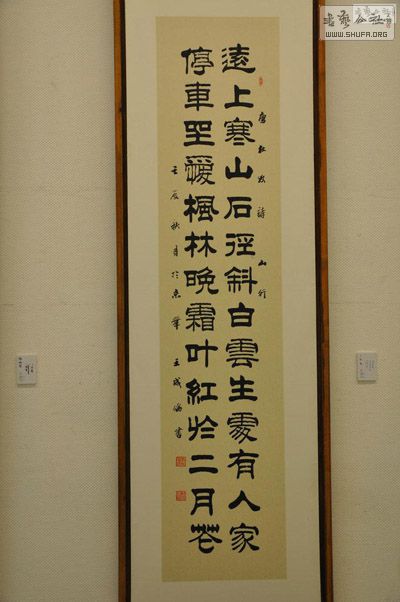 書藝公社
WWW.SHUFA.ORG
遠上寒山石徑斜白雲生處有人家
唐杜牧詩山行
停車坐愛楓林晚霜叶紅於二月花
壬辰秋月於京華王成
書